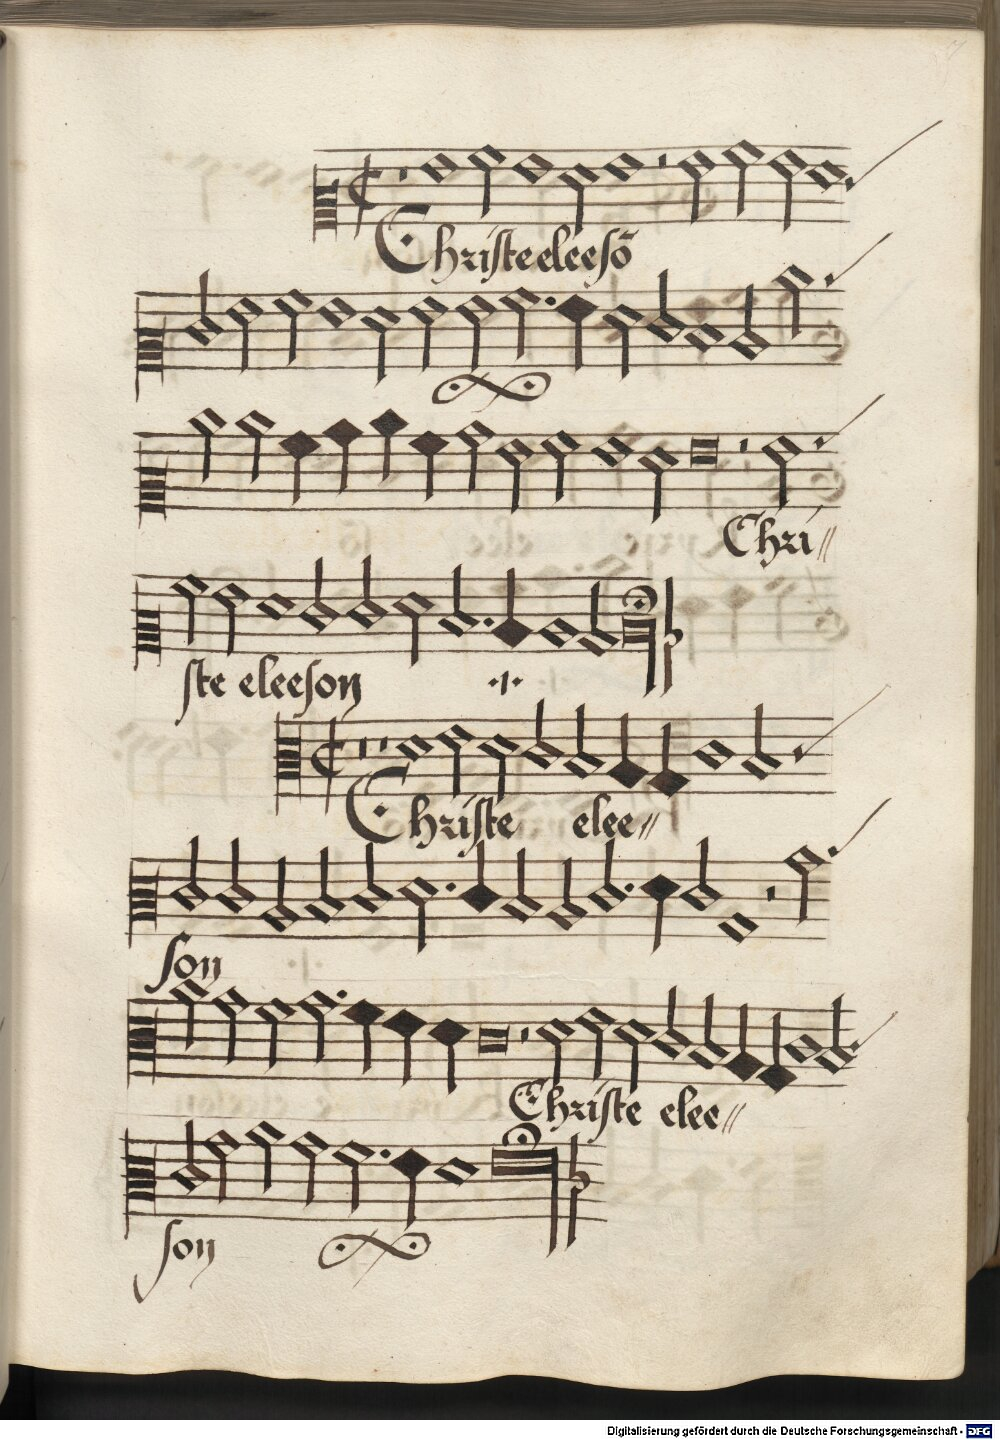 Christe eleesō
Chri//
ste eleeson ·1·
Christe elee//
son
Christe elee//
son
Digitalisierung gefördert durch die Deutsche Forschungsgemeinschaft - DFG